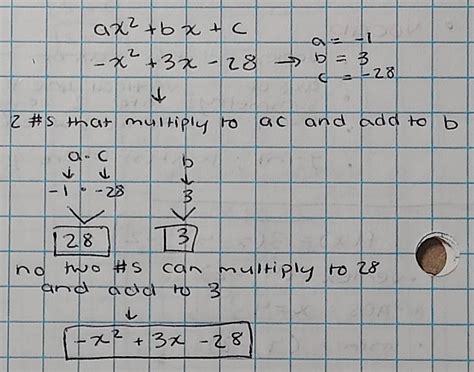 ax² + bx + c
-x² + 3x - 28 → a = -1
b = 3
c = -28
↓
2 #s that multiply to ac and add to b
a · c b
↓ ↓ ↓
-1 · -28 3
28 3
no two #s can multiply to 28
and add to 3
↓
-x² + 3x - 28